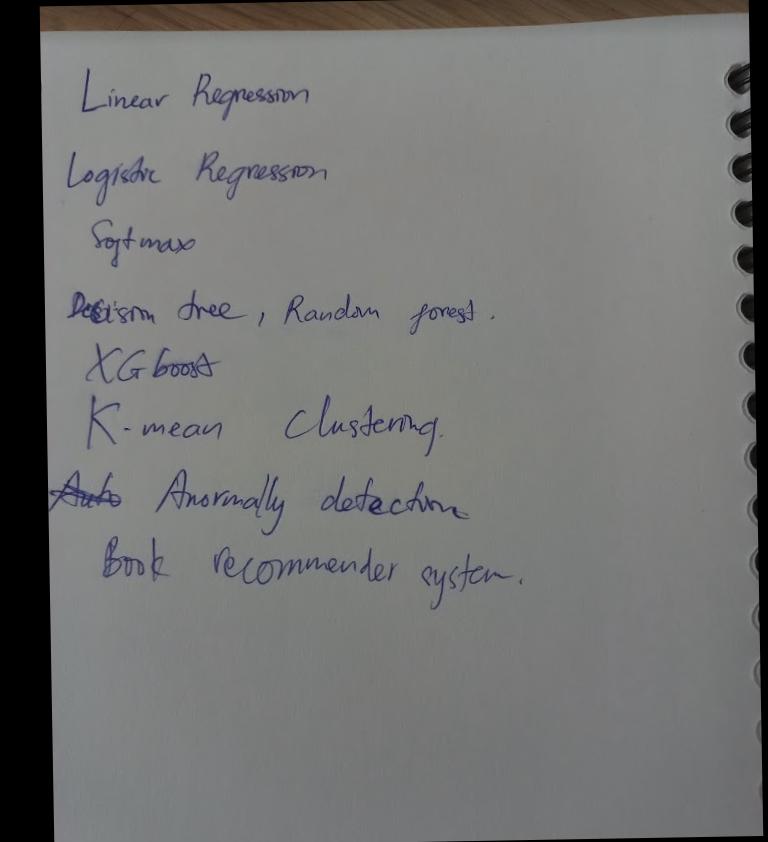 Linear Regression
Logistic Regression
Softmax
Decision tree, Random forest.
XGboost
K-mean Clustering.
Anormally detection
Book recommender system.